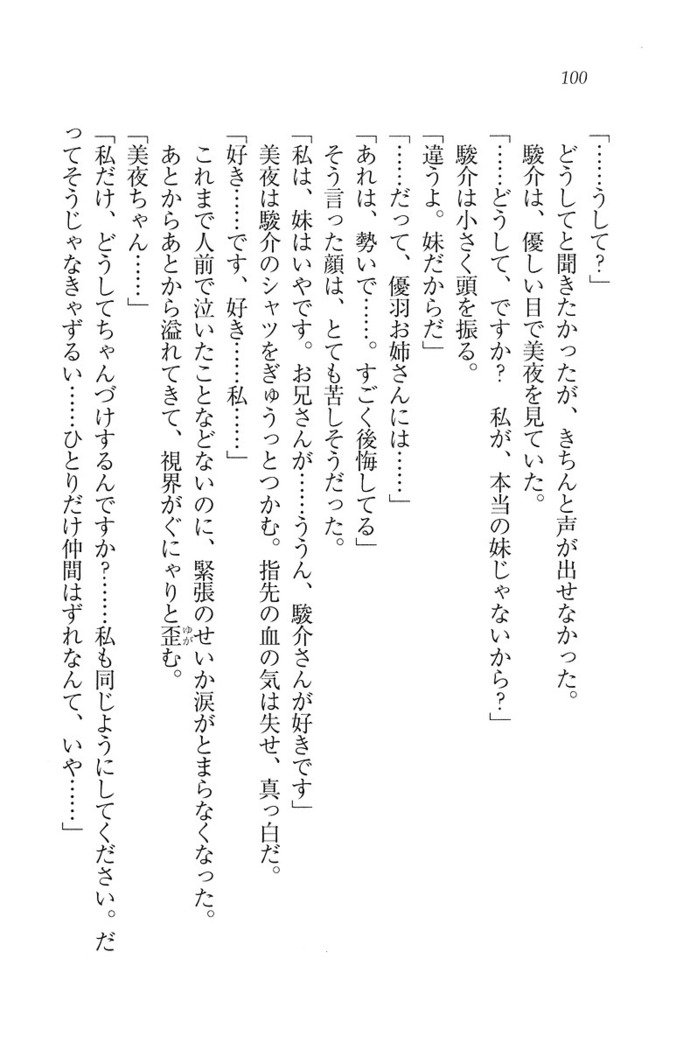 100
「……うして？」
どうしてと聞きたかったが、きちんと声が出せなかった。
駿介は、優しい目で美夜を見ていた。
「……どうして、ですか？　私が、本当の妹じゃないから？」
駿介は小さく頭を振る。
「違うよ。妹だからだ」
「……だって、優羽お姉さんには……」
「あれは、勢いで……。すごく後悔してる」
そう言った顔は、とても苦しそうだった。
「私は、妹はいやです。お兄さんが……ううん、駿介さんが好きです」
美夜は駿介のシャツをぎゅうっとつかむ。指先の血の気は失せ、真っ白だ。
「好き……です、好き……私……」
これまで人前で泣いたことなどないのに、緊張のせいか涙がとまらなくなった。
あとからあとから溢れてきて、視界がぐにゃりと歪む。
ゆが
「美夜ちゃん……」
「私だけ、どうしてちゃんづけするんですか？……私も同じようにしてください。だ
ってそうじゃなきゃずるい……ひとりだけ仲間はずれなんて、いや……」